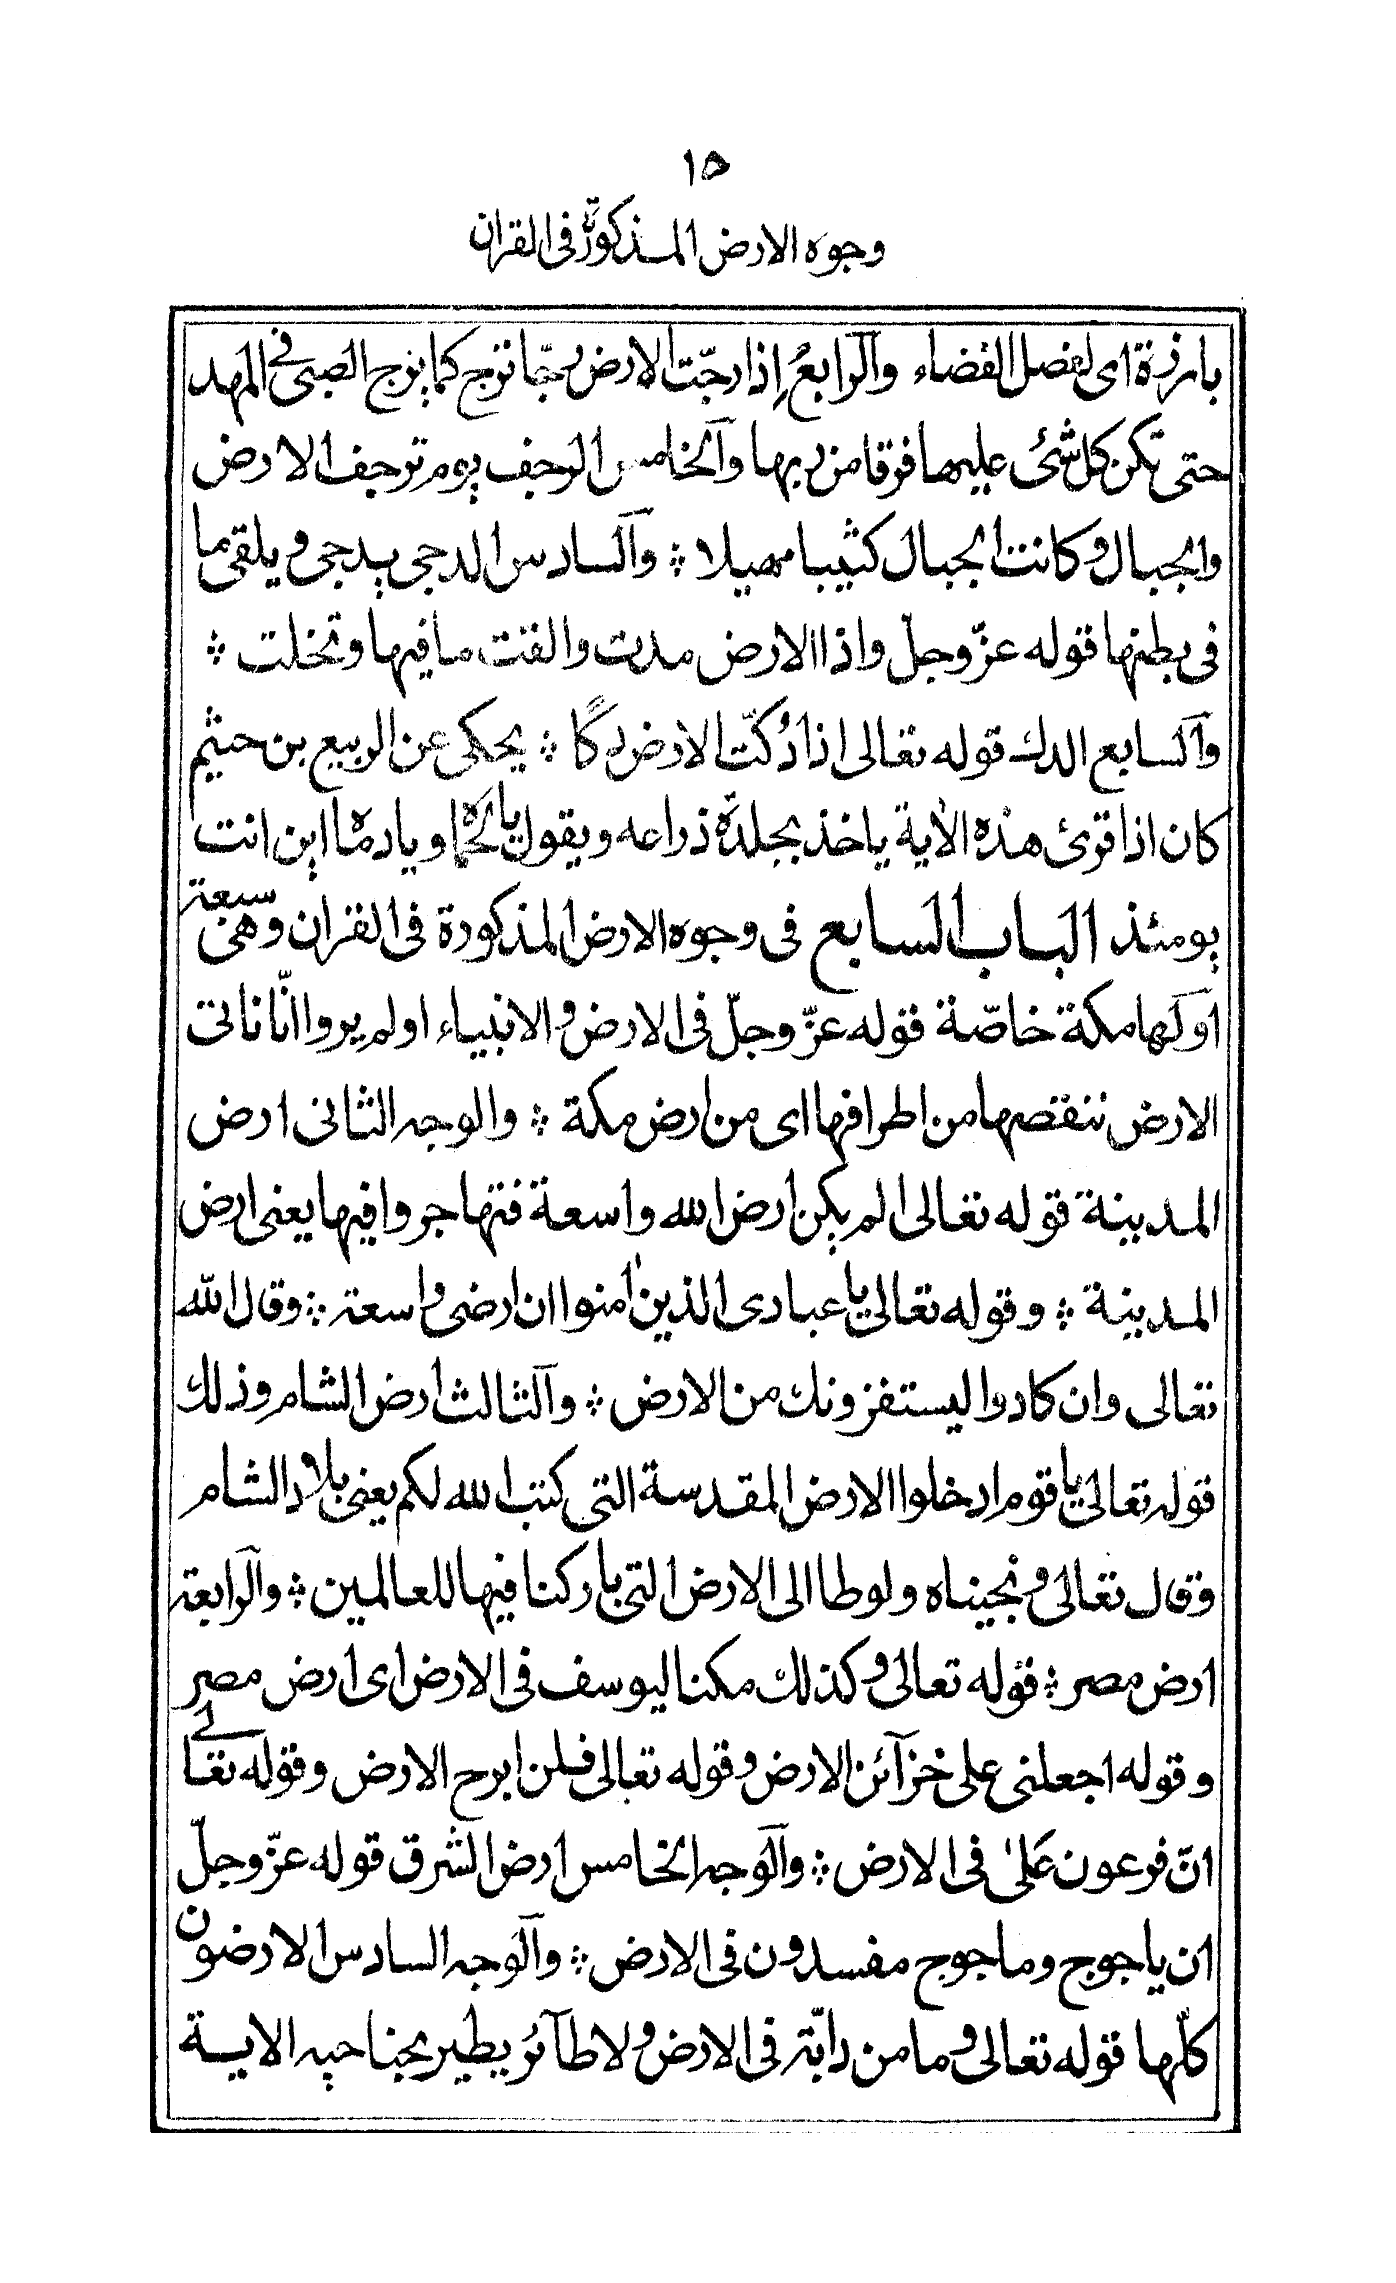 ١٥
وجوه الارض المذكورة فى القران
بارزة اى لفصل القضاء والرابع اذا رجّت الارض رجّا ترج كما يرج الصبى فى المهد
حتى تكن كل شئ عليها فرقا من ربها والخامس الرجف يوم ترجف الارض
والجبال وكانت الجبال كثيبا مهيلا ؞ والسادس الدحى يدحى ويلقى ما
فى بطنها قوله عزّ وجلّ واذا الارض مدت والقت ما فيها وتخلت ؞
والسابع الدك قوله تعالى اذا دُكّت الارض دكًا ؞ يحكى عن الربيع بن خيثم
كان اذا قرئ هذه الاية ياخذ بجلدة ذراعه ويقول يا لحماه ويا دماه اين انت
يومئذ الباب السابع فى وجوه الارض المذكورة فى القران وهى سبعة
اولها مكة خاصّة قوله عزّ وجلّ فى الارض والانبياء اولم يروا انّا ناتى
الارض ننقصها من اطرافها اى من ارض مكة ؞ والوجه الثانى ارض
المدينة قوله تعالى الم يكن ارض الله واسعة فتهاجروا فيها يعنى ارض
المدينة ؞ وقوله تعالى يا عبادى الذين اٰمنوا ان ارضى واسعة ؞ وقال الله
تعالى وان كادوا ليستفزونك من الارض ؞ والثالث ارض الشام وذلك
قوله تعالى يا قوم ادخلوا الارض المقدسة التى كتب الله لكم يعنى بلاد الشام
وقال تعالى ونجيناه ولوطا الى الارض التى باركنا فيها للعالمين ؞ والرابعة
ارض مصر ؞ قوله تعالى وكذلك مكنا ليوسف فى الارض اى ارض مصر
وقوله اجعلنى على خزآئن الارض وقوله تعالى فلن ابرح الارض وقوله تعالى
انّ فرعون علىٰ فى الارض ؞ والوجه الخامس ارض الشرق قوله عزّ وجلّ
ان ياجوج وماجوج مفسدون فى الارض ؞ والوجه السادس الارضون
كلّها قوله تعالى وما من دابّة فى الارض ولا طآئر يطير بجناحيه الاية